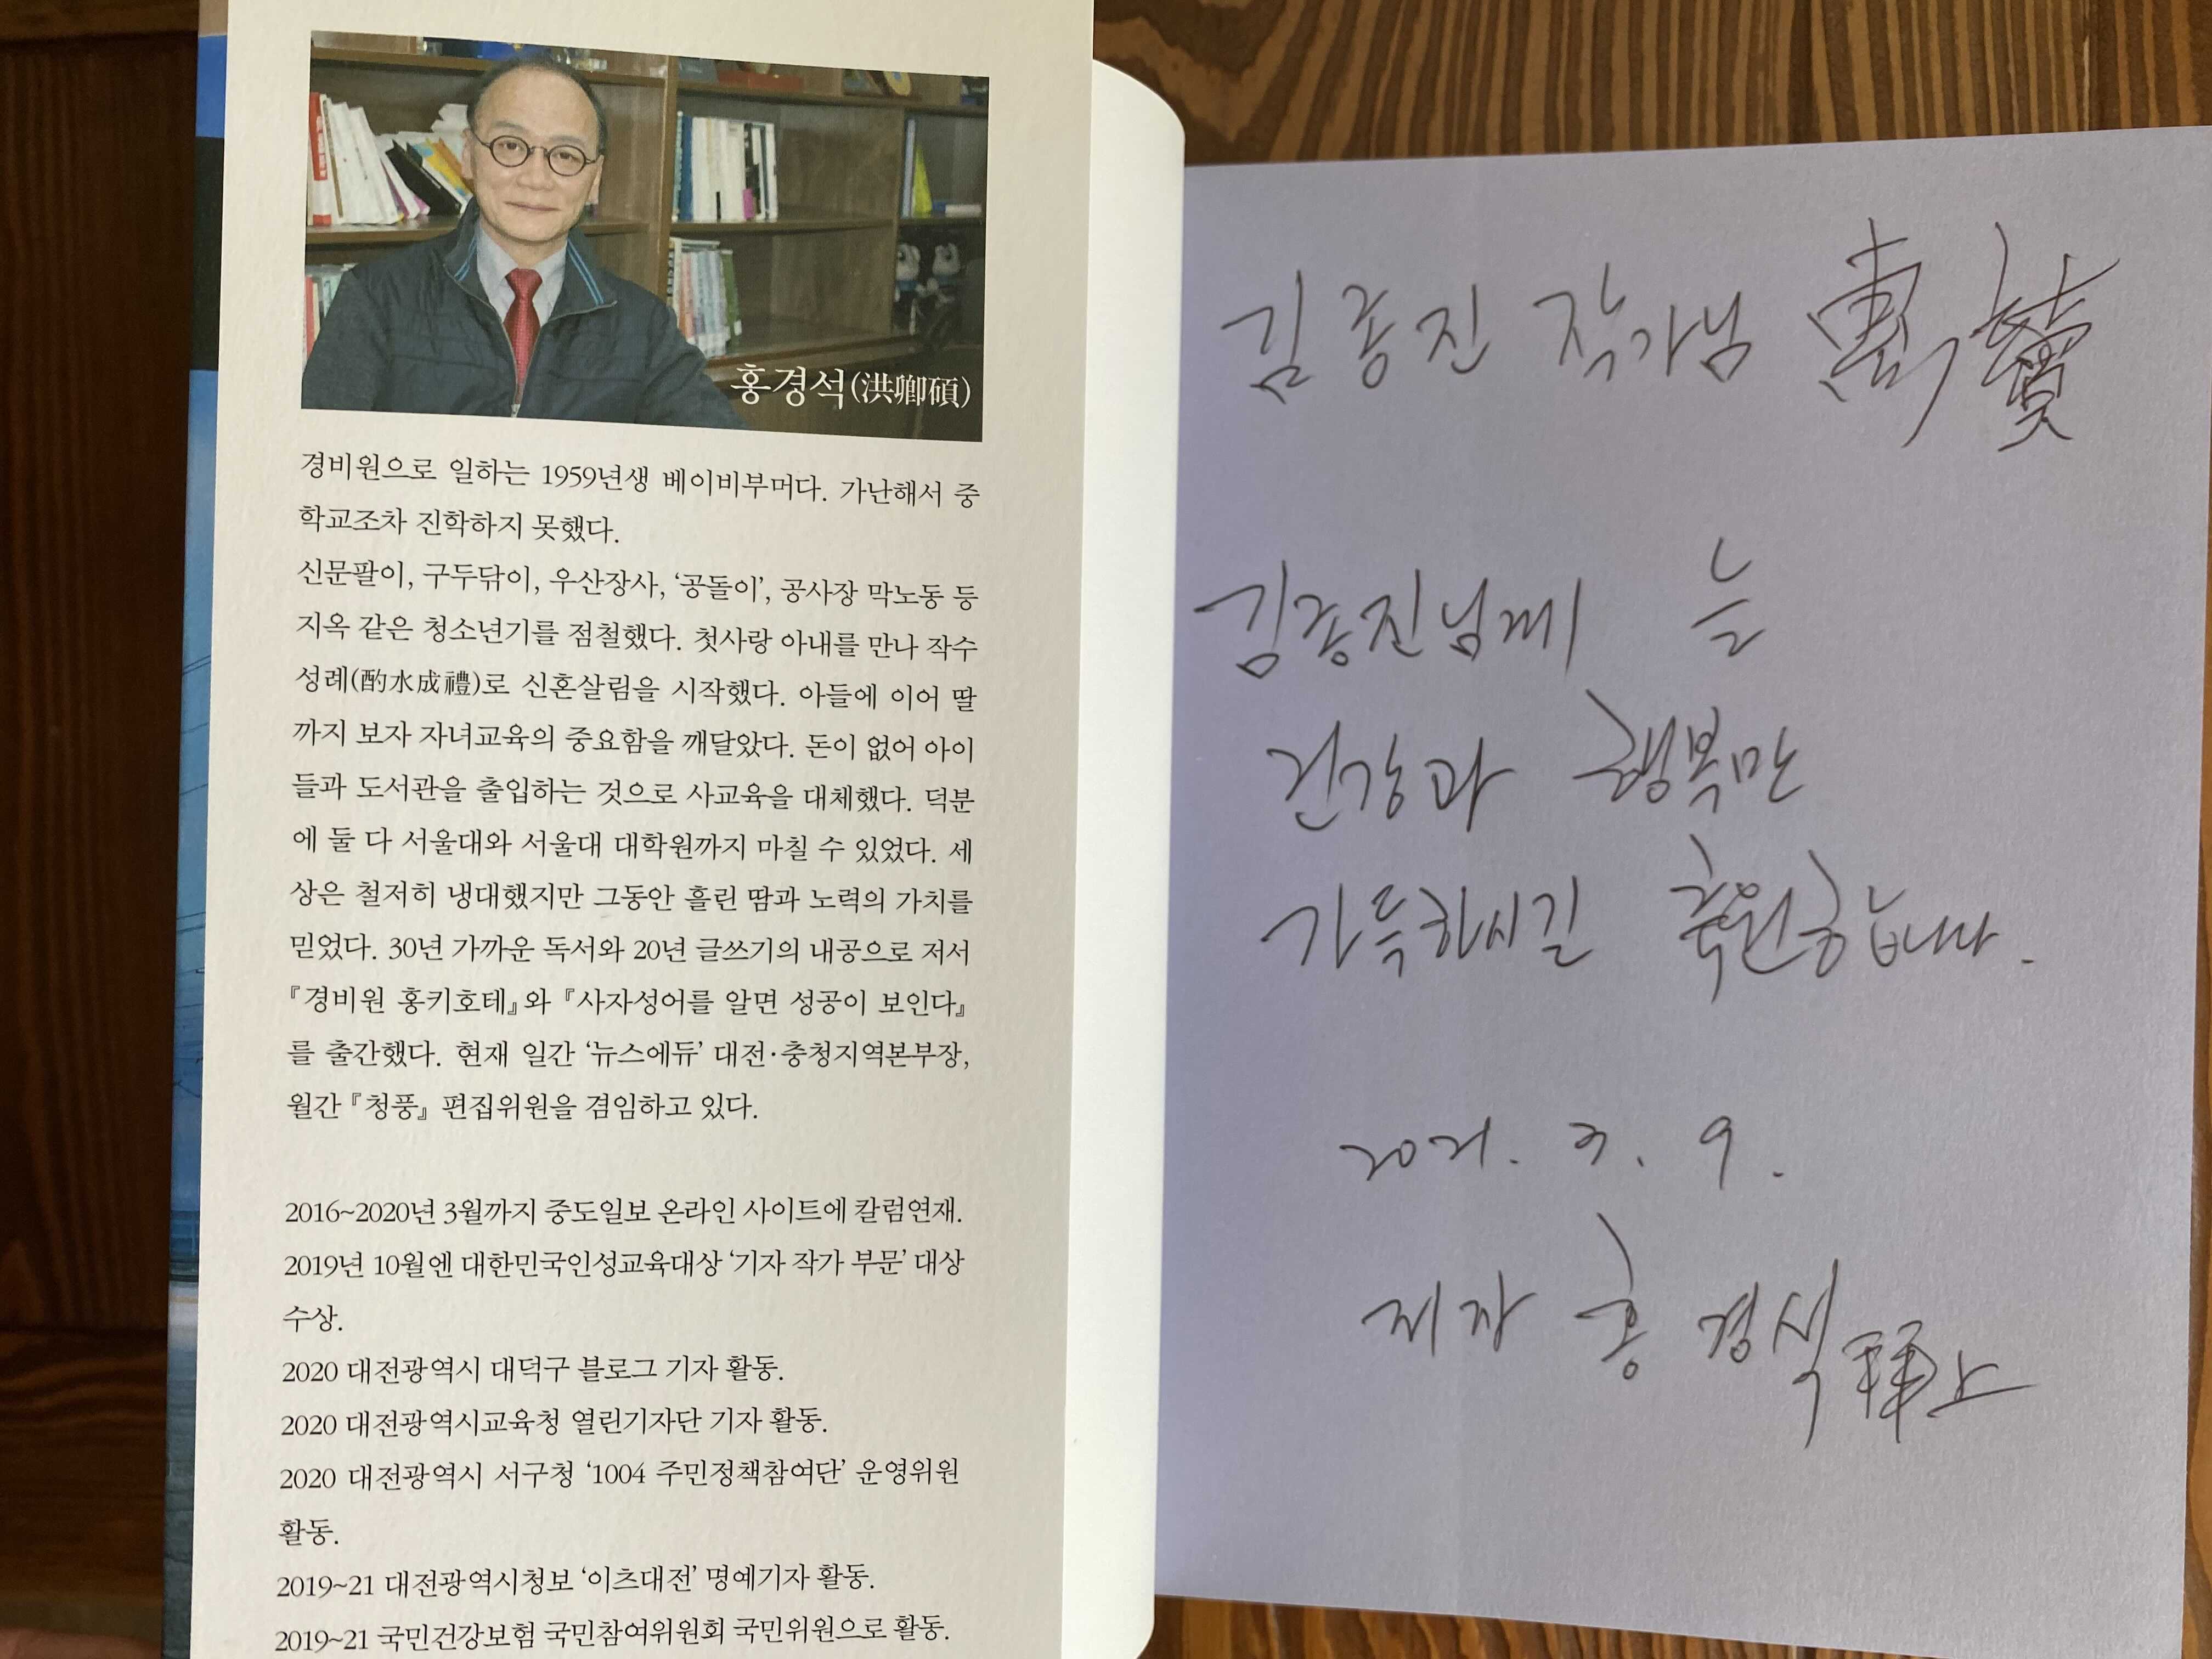 홍경석(洪卿碩)
경비원으로 일하는 1959년생 베이비부머다. 가난해서 중
학교조차 진학하지 못했다.
신문팔이, 구두닦이, 우산장사, ‘공돌이’, 공사장 막노동 등
지옥 같은 청소년기를 점철했다. 첫사랑 아내를 만나 작수
성례(酌水成禮)로 신혼살림을 시작했다. 아들에 이어 딸
까지 보자 자녀교육의 중요함을 깨달았다. 돈이 없어 아이
들과 도서관을 출입하는 것으로 사교육을 대체했다. 덕분
에 둘 다 서울대와 서울대 대학원까지 마칠 수 있었다. 세
상은 철저히 냉대했지만 그동안 흘린 땀과 노력의 가치를
믿었다. 30년 가까운 독서와 20년 글쓰기의 내공으로 저서
『경비원 홍키호테』와 『사자성어를 알면 성공이 보인다』
를 출간했다. 현재 일간 ‘뉴스에듀’ 대전·충청지역본부장,
월간 『청풍』 편집위원을 겸임하고 있다.
2016~2020년 3월까지 중도일보 온라인 사이트에 칼럼연재.
2019년 10월엔 대한민국인성교육대상 ‘기자 작가 부문’ 대상
수상.
2020 대전광역시 대덕구 블로그 기자 활동.
2020 대전광역시교육청 열린기자단 기자 활동.
2020 대전광역시 서구청 ‘1004 주민정책참여단’ 운영위원
활동.
2019~21 대전광역시청보 ‘이츠대전’ 명예기자 활동.
2019~21 국민건강보험 국민참여위원회 국민위원으로 활동.
김종진 작가님 惠
김종진님께 늘
건강과 행복만
가득하시길 축원합니다.
2021. 3. 9.
저자 홍경석 拜上